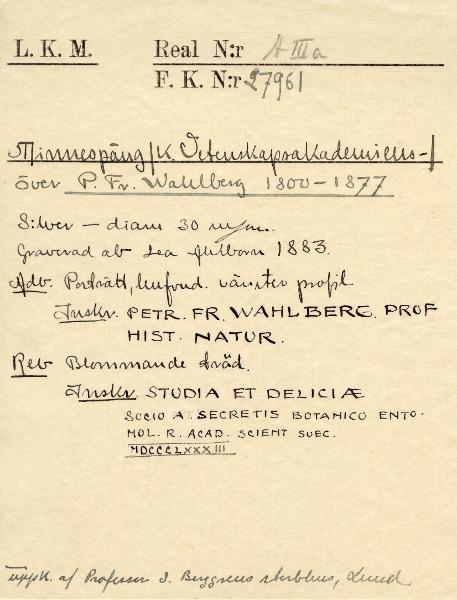 L. K. M. Real N:r A III a
F. K. N:r 27961
Minnespäng /K. Vetenskapsakademiens-/
över P. Fr. Wahlberg 1800-1877
Silver - diam 30 m/m.
Graverad av Lea Ahlborn 1883.
Adv. Porträtt, hufvud. vänster profil
Inskr. PETR. FR. WAHLBERG. PROF
HIST. NATUR.
Rev Blommande träd.
Inskr. STUDIA ET DELICIÆ
SOCIO A. SECRETIS BOTANICO ENTO-
MOL. R. ACAD. SCIENT SUEC.
MDCCCLXXXIII
uppk. af Professor S. Berggrens sterbhus, Lund